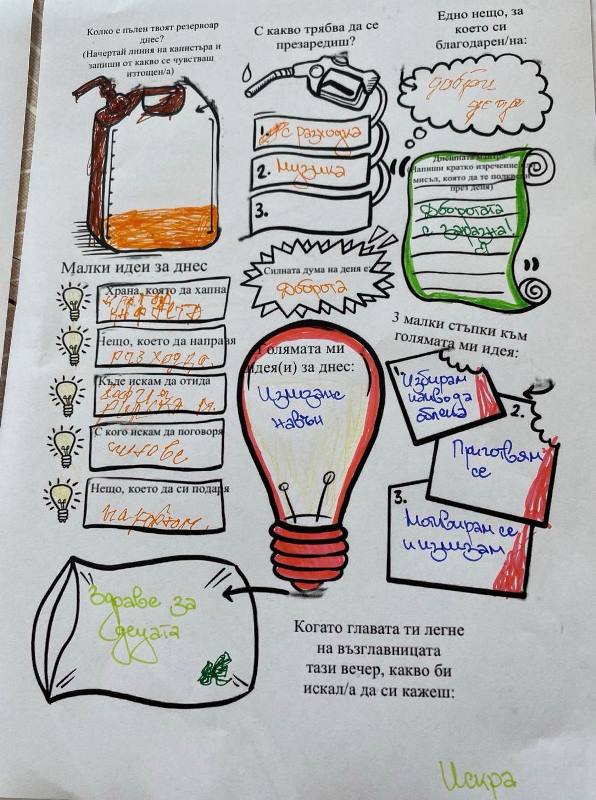 Колко е пълен твоят резервоар
днес?
(Начертай линия на канистъра и
запиши от какво се чувстваш
изтощен/а)
С какво трябва да се
презаредиш?
1. с разходка
2. Музика
3.
Едно нещо, за
което си
благодарен/на:
добри
деца
Дневната мантра
(Напиши кратко изречение
мисъл, която да те
през деня)
Добротата
е заразна!
Силната дума на деня е
Доброта
Малки идеи за днес
Храна, която да хапна
Нещо, което да направя
разходка
Къде искам да отида
С кого искам да поговоря
синове
Нещо, което да си подаря
Голямата ми
идея(и) за днес:
Излизане
навън
3 малки стъпки към
голямата ми идея:
1. Избирам
облека
2.
Приготвям
се
3.
Мотивирам се
и излизам
Здраве за
децата
Когато главата ти легне
на възглавницата
тази вечер, какво би
искал/а да си кажеш:
Искра